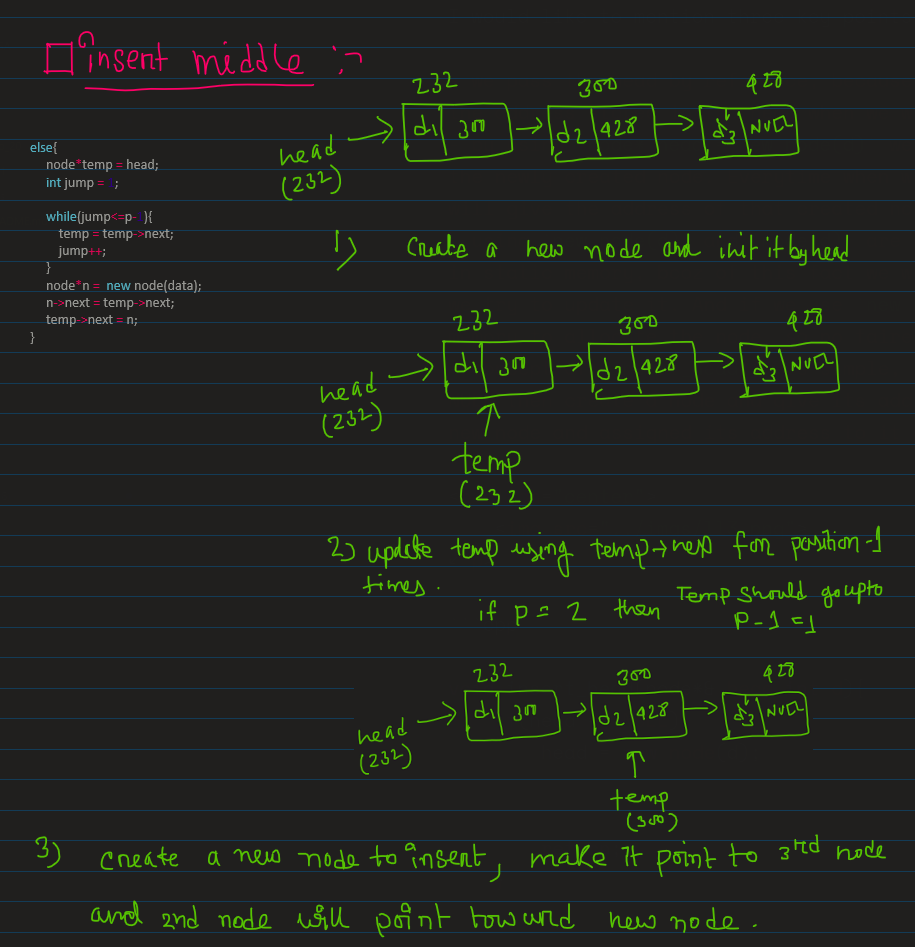 insert middle :-
232 300 428
head
(232)
d1 300 d2 428 d3 NULL
else{
node*temp = head;
int jump = ;
while(jump<=p-){
temp = temp->next;
jump++;
}
node*n = new node(data);
n->next = temp->next;
temp->next = n;
}
1) Create a new node and init it by head
232 300 428
head
(232)
d1 300 d2 428 d3 NULL
temp
(232)
2) update temp using temp→next for position-1
times.
if p = 2 then Temp should go upto
P-1 = 1
232 300 428
head
(232)
d1 300 d2 428 d3 NULL
temp
(300)
3) create a new node to insert, make it point to 3rd node
and 2nd node will point toward new node.